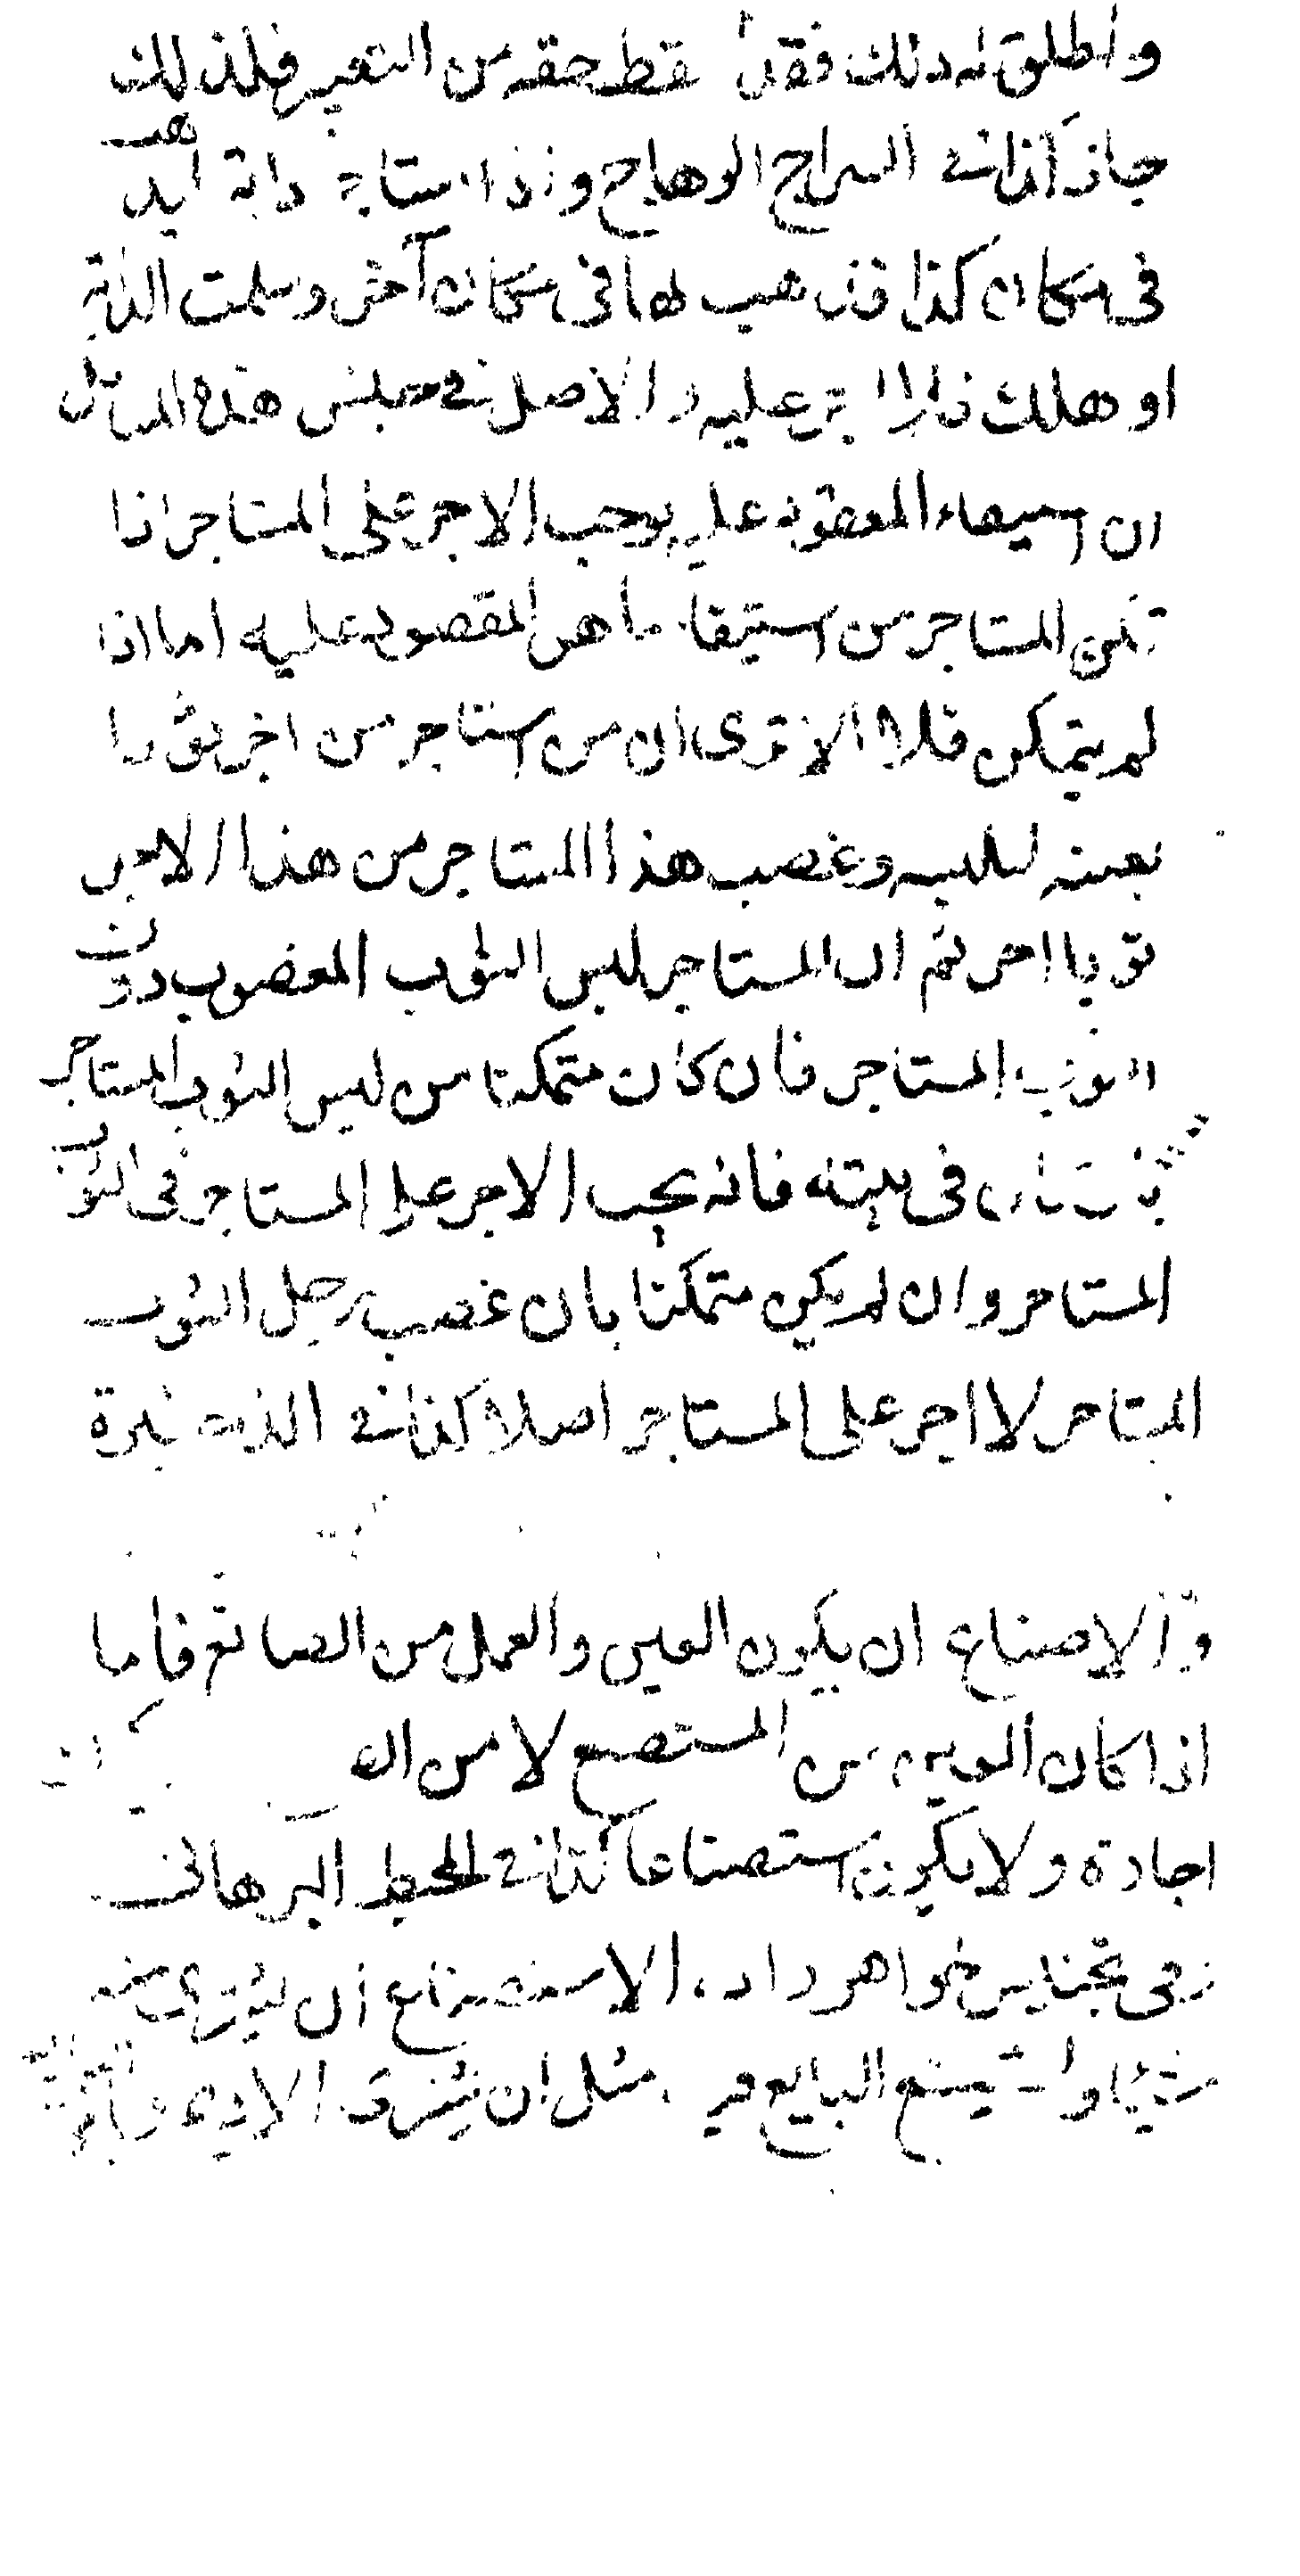 واطلق له ذلك فقد سقط حقه من التعيين فلذلك
جاز كذا في السراج الوهاج واذا استاجر دابة ليذهب
في مكان كذا فذهب بها في مكان آخر وسلمت الدابة
او هلكت فلا اجر عليه والاصل في جنس هذه المسائل
ان استيفاء المعقود عليه يوجب الاجر على المستاجر اذا
تمكن المستاجر من استيفاء ما هو المقصود عليه اما اذا
لم يتمكن فلا الا ترى ان من استاجر من اخر ثوبا
بعينه للبسه وغصب هذا المستاجر من هذا الاجر
ثوبا اخر ثم ان المستاجر لبس الثوب المغصوب دون
الثوب المستاجر فان كان متمكنا من لبس الثوب المستاجر
بان كان في بيته فانه يجب الاجر على المستاجر في الثوب
المستاجر وان لم يكن متمكنا بان غصب رجل الثوب
المستاجر لا اجر على المستاجر اصلا كذا في الذخيرة
الاصناع ان يكون العين والعمل من الصانع فاما
اذا كان العين من المستصنع لا من
اجارة ولا يكون استصناعا كذا في المحيط البرهاني
وفي تجنيس خواهر زاده الاستصناع ان يشتري منه
شيئا و يستصنع البايع فيه مثل ان يشتري الاديم